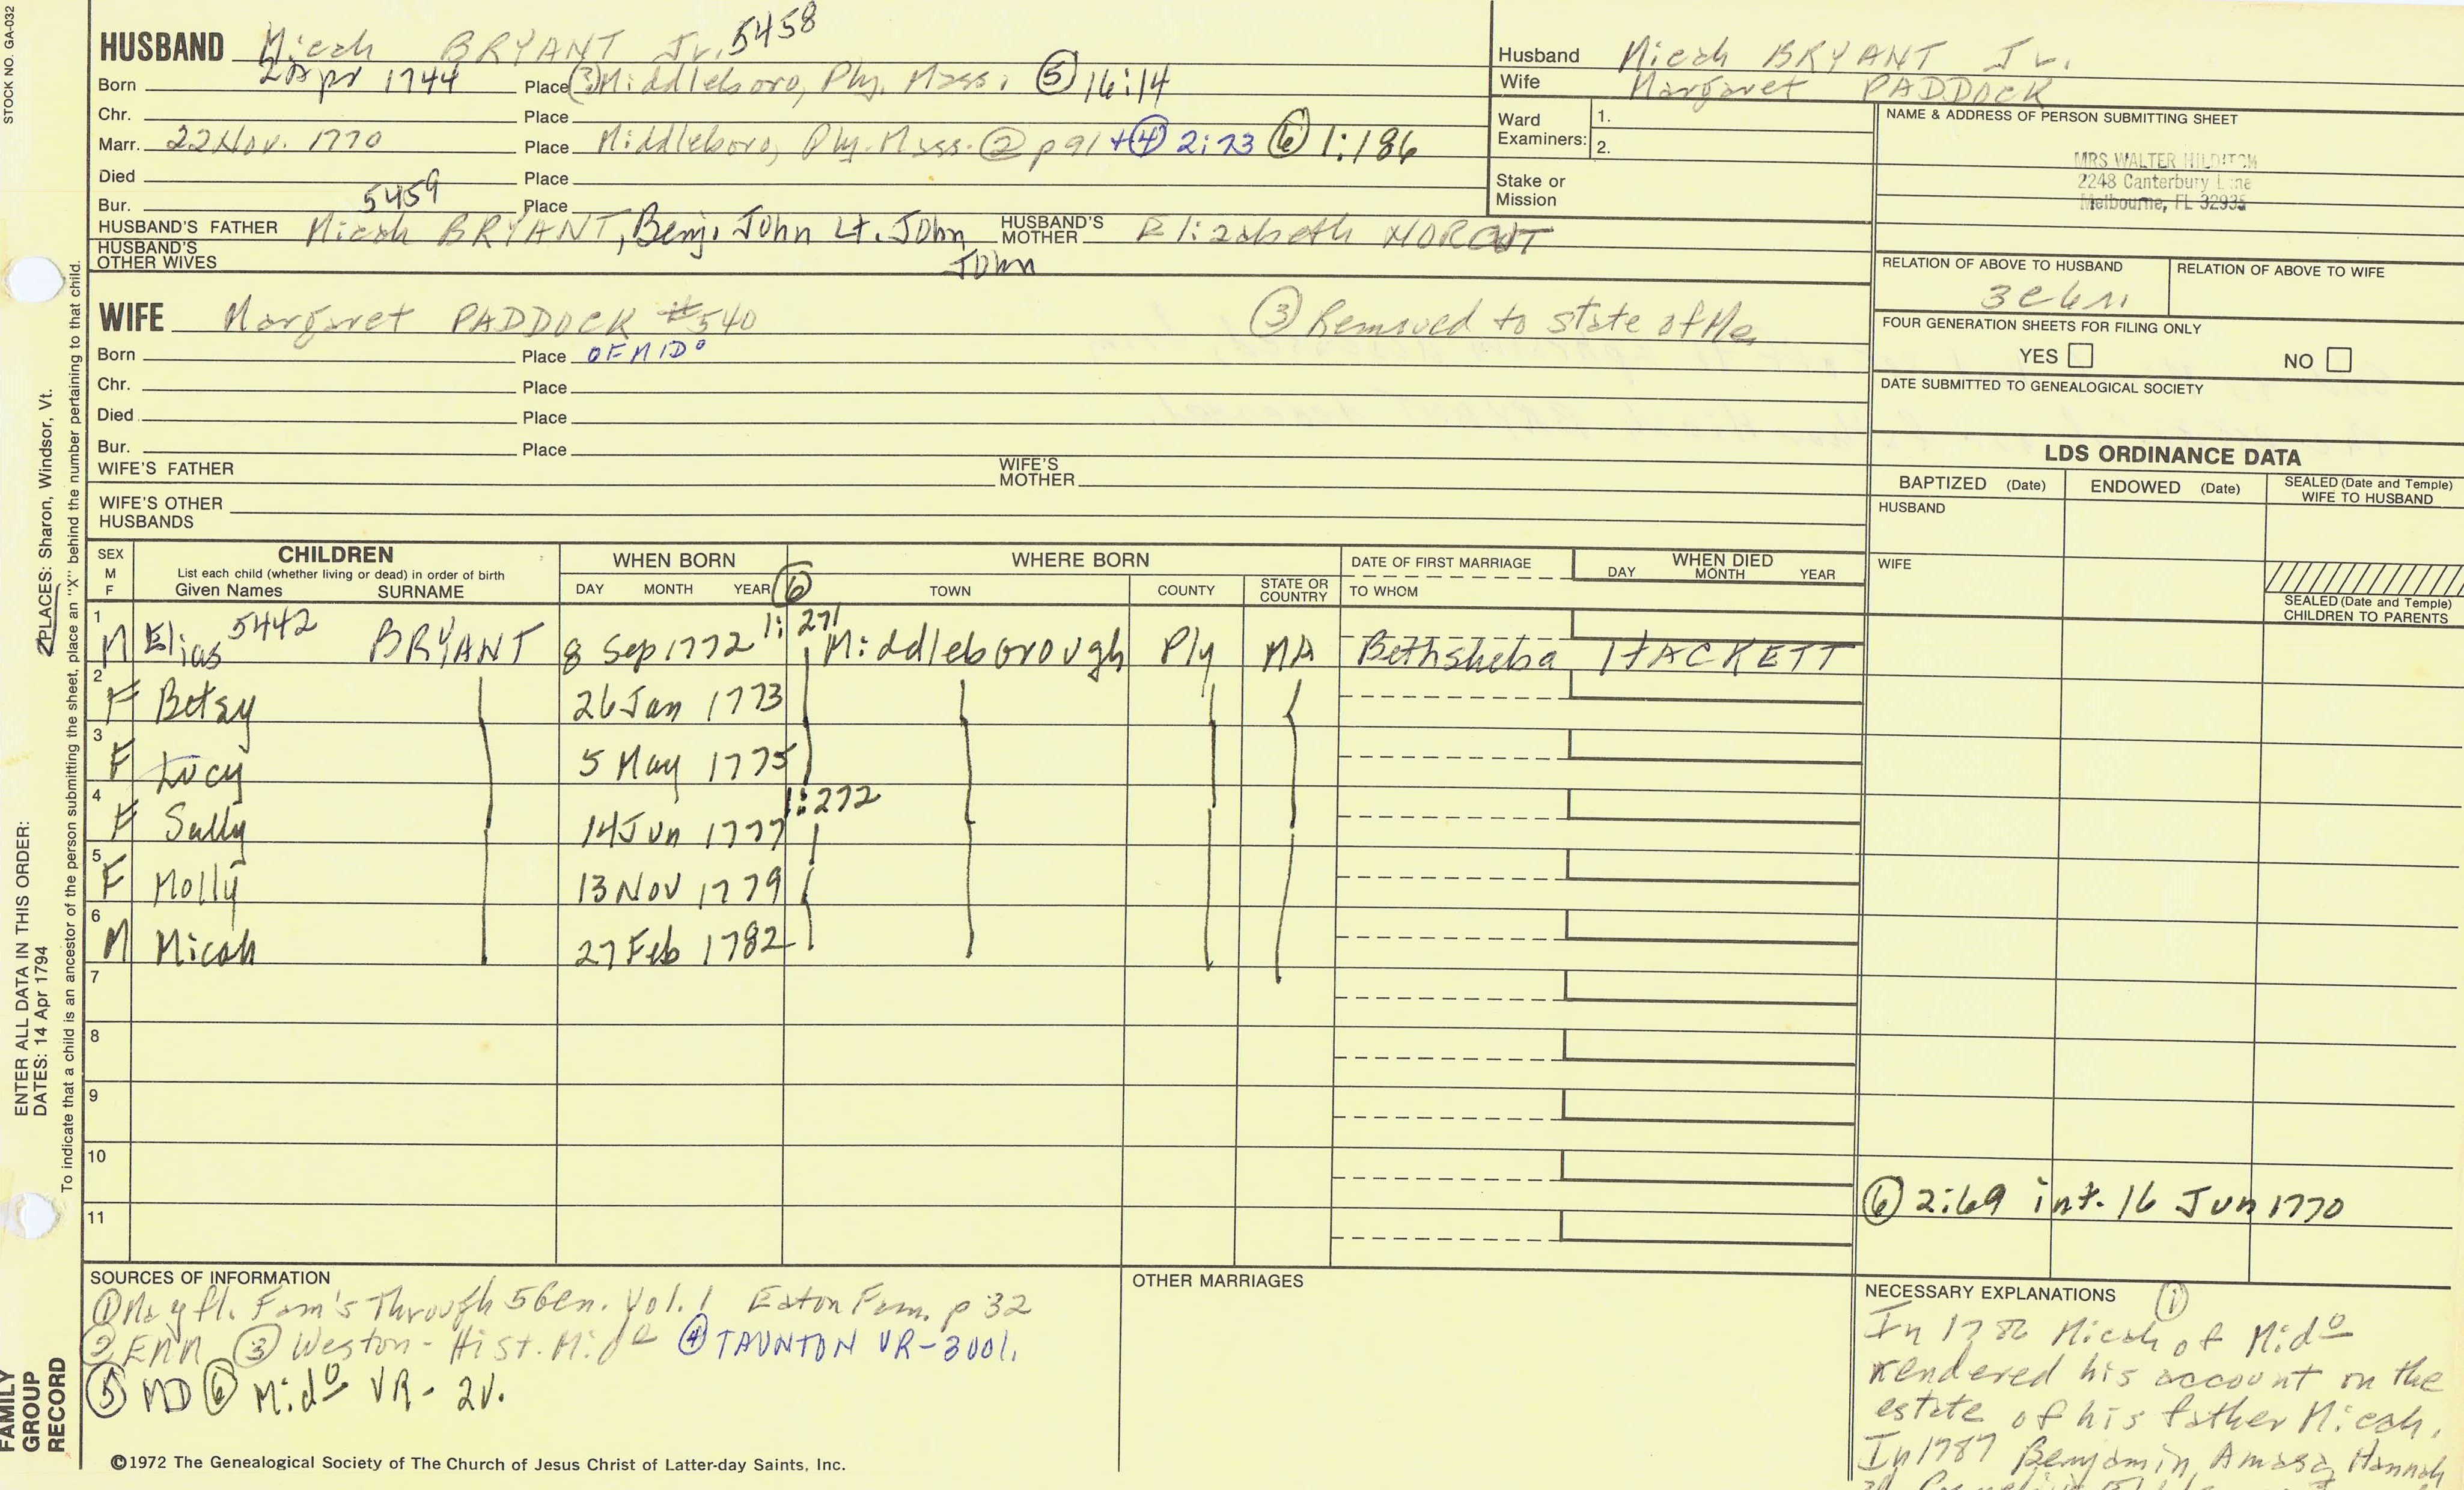 STOCK NO. GA-032
HUSBAND Micah BRYANT Jr. 5458
Born 2 Apr 1744 Place (3) Middleboro, Ply. Mass. (5) 16:14
Chr. Place
Marr. 22 Nov. 1770 Place Middleboro, Ply. Mass. (2) p 91 + (4) 2:73 (6) 1:186
Died Place
Bur. Place
5459
HUSBAND'S FATHER Micah BRYANT, Benj. John Lt. John John HUSBAND'S MOTHER Elizabeth
HUSBAND'S OTHER WIVES
WIFE Margaret PADDOCK #540 (3) Removed to state of Me.
Born Place OF MIDo
Chr. Place
Died Place
Bur. Place
WIFE'S FATHER WIFE'S MOTHER
WIFE'S OTHER HUSBANDS
Husband Micah BRYANT Jr.
Wife Margaret PADDOCK
Ward Examiners: 1.
2.
Stake or Mission
NAME & ADDRESS OF PERSON SUBMITTING SHEET
MRS WALTER HILDITCH
2248 Canterbury Lane
Melbourne, FL 32935
RELATION OF ABOVE TO HUSBAND RELATION OF ABOVE TO WIFE
FOUR GENERATION SHEETS FOR FILING ONLY
YES NO
DATE SUBMITTED TO GENEALOGICAL SOCIETY
LDS ORDINANCE DATA
BAPTIZED (Date) ENDOWED (Date) SEALED (Date and Temple) WIFE TO HUSBAND
HUSBAND
WIFE
SEALED (Date and Temple) CHILDREN TO PARENTS
SEX M F CHILDREN WHEN BORN WHERE BORN DATE OF FIRST MARRIAGE WHEN DIED
List each child (whether living or dead) in order of birth
Given Names SURNAME DAY MONTH YEAR (6) TOWN COUNTY STATE OR COUNTRY TO WHOM DAY MONTH YEAR
1 M Elias 5442 BRYANT 8 Sep 1772 1:271 Middleborough Ply MA Bethsheba HACKETT
2 F Betsy 26 Jan 1773
3 F Lucy 5 May 1775
4 F Sally 14 Jun 1777 1:272
5 F Molly 13 Nov 1779
6 M Micah 27 Feb 1782
7
8
9
10
(6) 2:69 int. 16 Jun 1770
11
SOURCES OF INFORMATION
(1) Mayfl. Fam's Through 5 Gen. Vol. 1 Eaton Fam. p 32
(2) EMM (3) Weston - Hist. Mido (4) TAUNTON VR - 3vol.
(5) MD (6) Mido VR - 2v.
OTHER MARRIAGES
NECESSARY EXPLANATIONS (1)
In Micah of Mido
rendered his account on the
estate of his father Micah.
In 1787 Benjamin, Amasa, Hannah
©1972 The Genealogical Society of The Church of Jesus Christ of Latter-day Saints, Inc.
ENTER ALL DATA IN THIS ORDER:
DATES: 14 Apr 1794 PLACES: Sharon, Windsor, Vt.
To indicate that a child is an ancestor of the person submitting the sheet, place an "X" behind the number pertaining to that child.
FAMILY
GROUP
RECORD